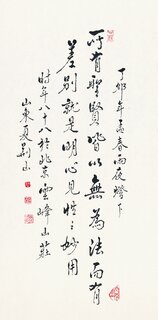 卯年孟春雨夜燈下
所有聖賢皆以無為法而有
差別就是明心見性之妙用
時年八十八於北京雲峰山莊
山東夏荆山